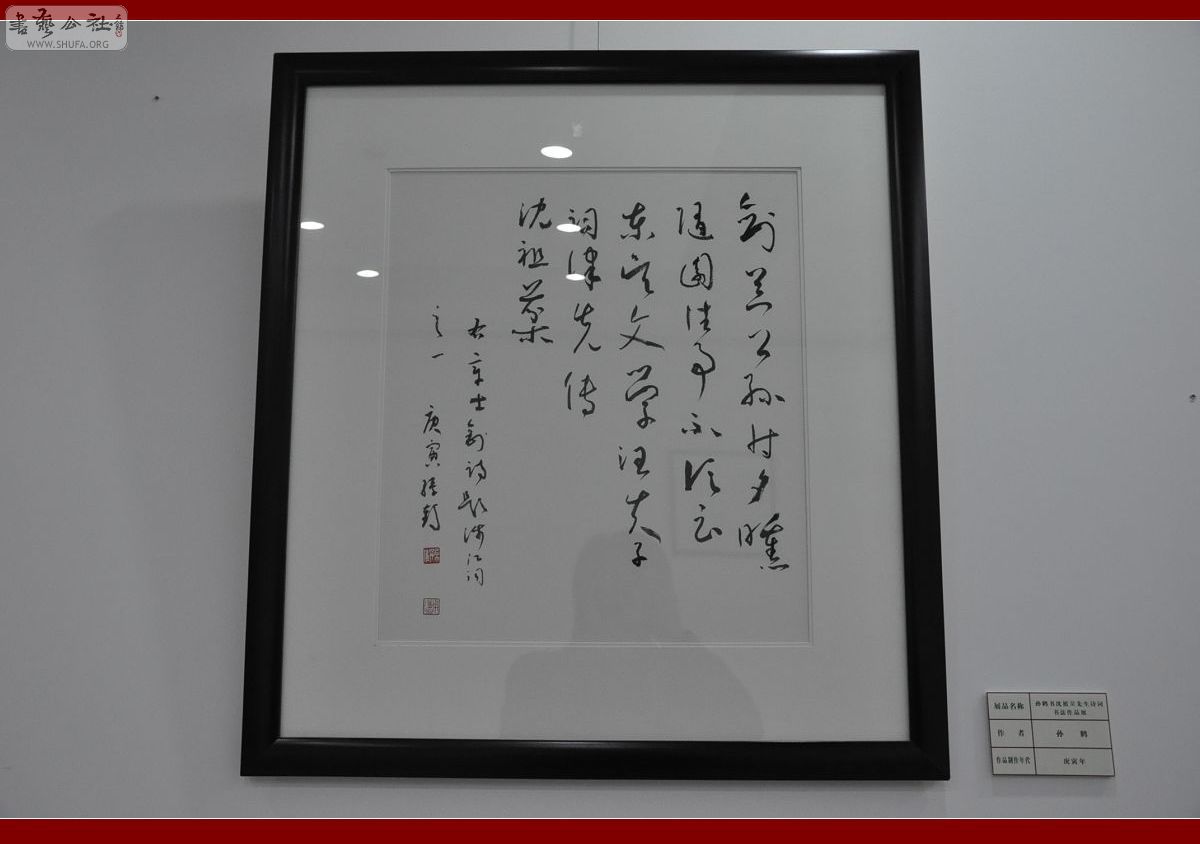 書藝公社
WWW.SHUFA.ORG
剑器公孙付夕曛
随园往事不须云
东吴文学汪夫子
词律先传
沈祖棻
右章士钊诗题涉江词
之一 庚寅孙鹤
展品名称 孙鹤书沈祖棻先生诗词
书法作品展
作者 孙鹤
作品制作年代 庚寅年